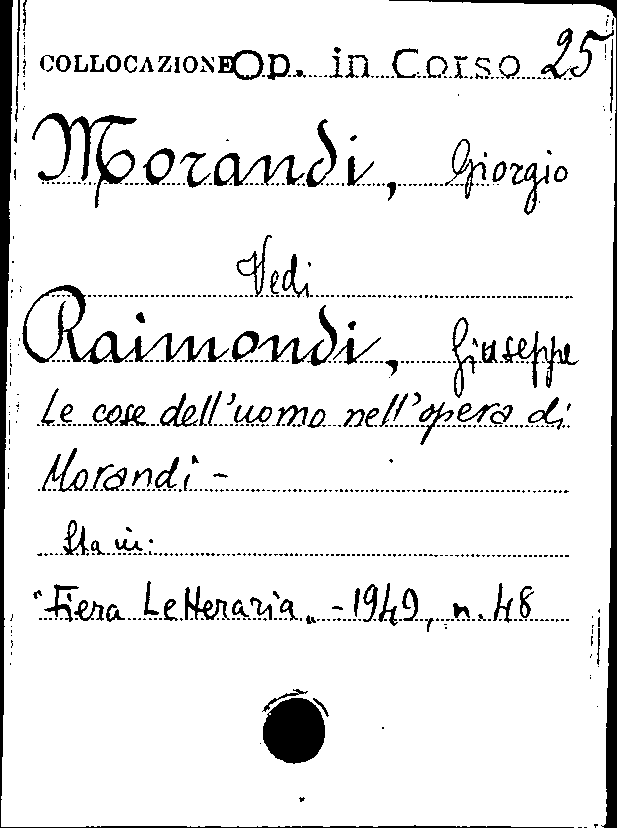 COLLOCAZIONE Op. in Corso 25
Morandi, Giorgio
Vedi
Raimondi, Giuseppe
Le cose dell'uomo nell'opera di
Morandi -
Sta in:
"Fiera Letteraria" - 1949, n. 48